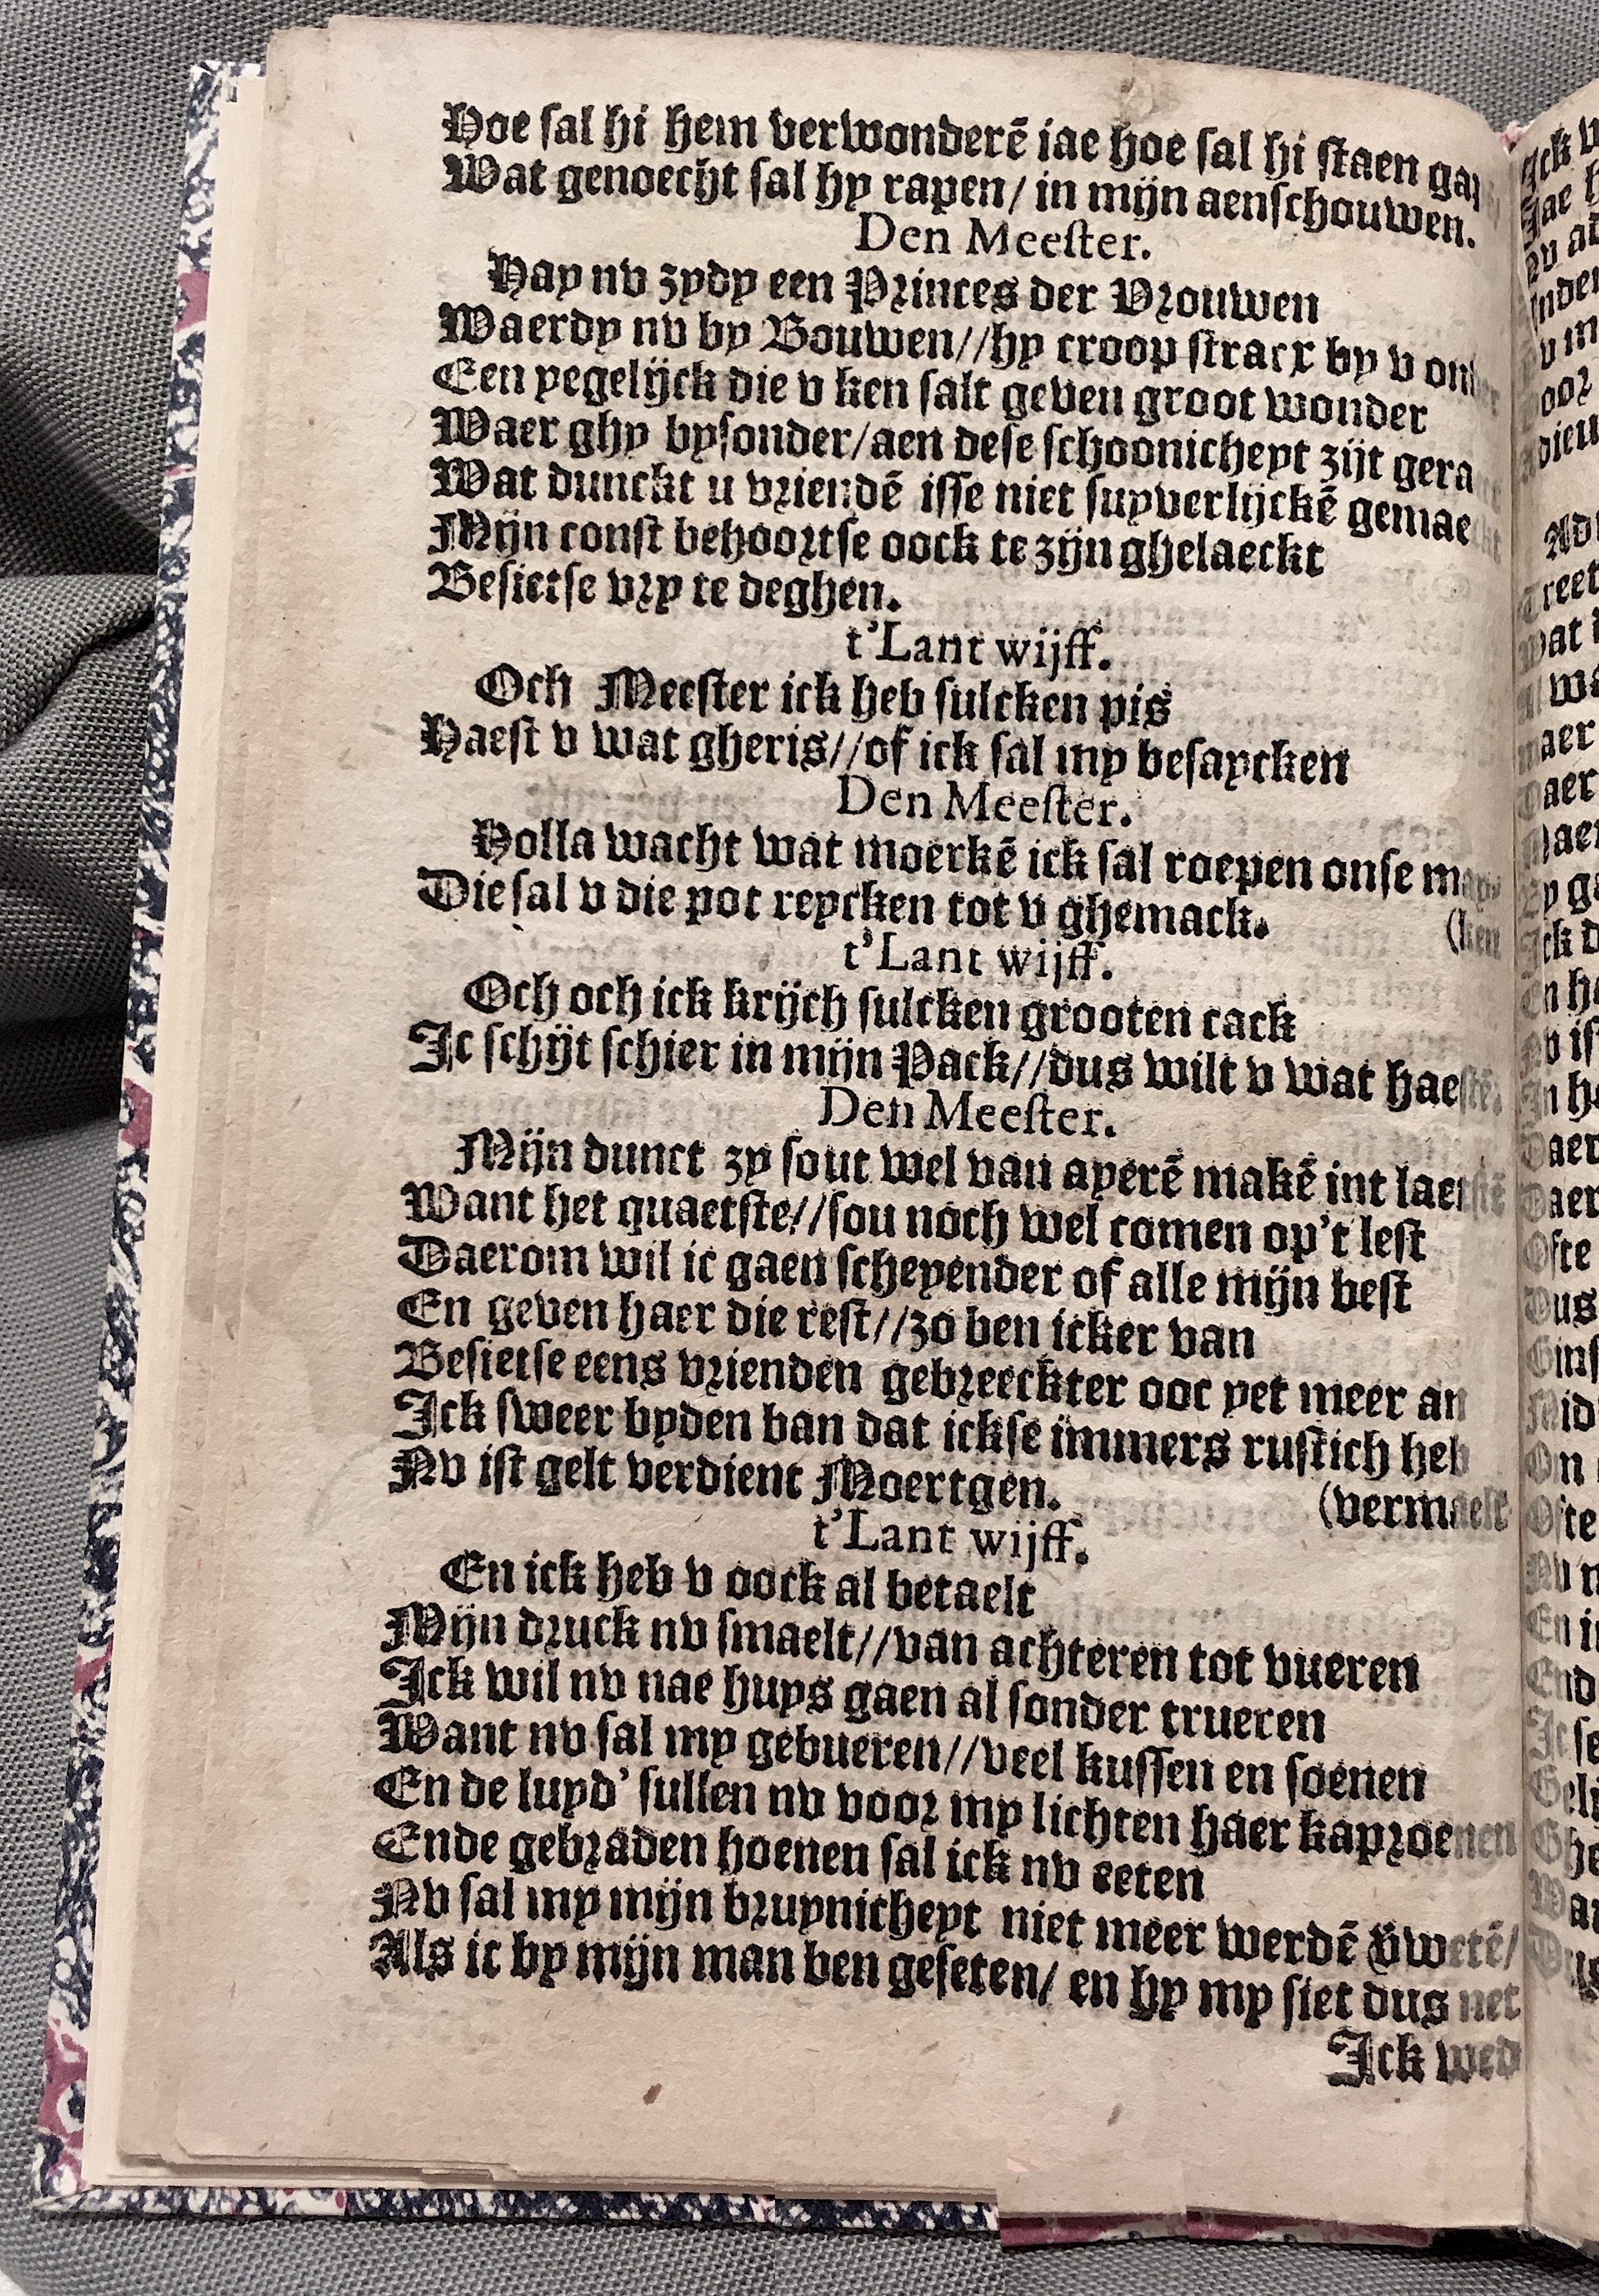 Hoe sal hi hem verwonderē iae hoe sal hi staen gap
Wat genoecht sal hy rapen/ in mijn aenschouwen.
Den Meester.
Hay nv zydy een Princes der Vrouwen
Waerdy nv by Bouwen//hy croop stracx by v onder
Een yegelijck die v ken salt geven groot wonder
Waer ghy bysonder/aen dese schoonicheyt zijt geraeckt
Wat dunckt u vriendē isse niet suyverlijckē gemaeckt
Mijn const behoortse oock te zijn ghelaeckt
Besietse vry te deghen.
t'Lant wijff.
Och Meester ick heb sulcken pis
Haest v wat gheris//of ick sal my besaycken
Den Meester.
Holla wacht wat moerkē ick sal roepen onse may-
Die sal v die pot reycken tot v ghemack.
(ken
t'Lant wijff.
Och och ick krijch sulcken grooten cack
Ic schijt schier in mijn Pack//dus wilt v wat haestē.
Den Meester.
Mijn dunct zy sout wel van ayerē makē int laetstē
Want het quaetste//sou noch wel comen op't lest
Daerom wil ic gaen scheyender of alle mijn best
En geven haer die rest//zo ben icker van
Besietse eens vrienden gebreeckter ooc yet meer an
Ick sweer byden ban dat ickse immers rustich heb
Nv ist gelt verdient Moertgen.
(vermaelt
t'Lant wijff.
En ick heb v oock al betaelt
Mijn druck nv smaelt//van achteren tot vueren
Ick wil nv nae huys gaen al sonder trueren
Want nv sal my gebueren//veel kussen en soenen
En de luyd' sullen nv voor my lichten haer kaproenen
Ende gebraden hoenen sal ick nv eeten
Nv sal my mijn bruynicheyt niet meer werdē v̈wetē/
Als ic by mijn man ben geseten/ en hy my siet dus net
Ick wed